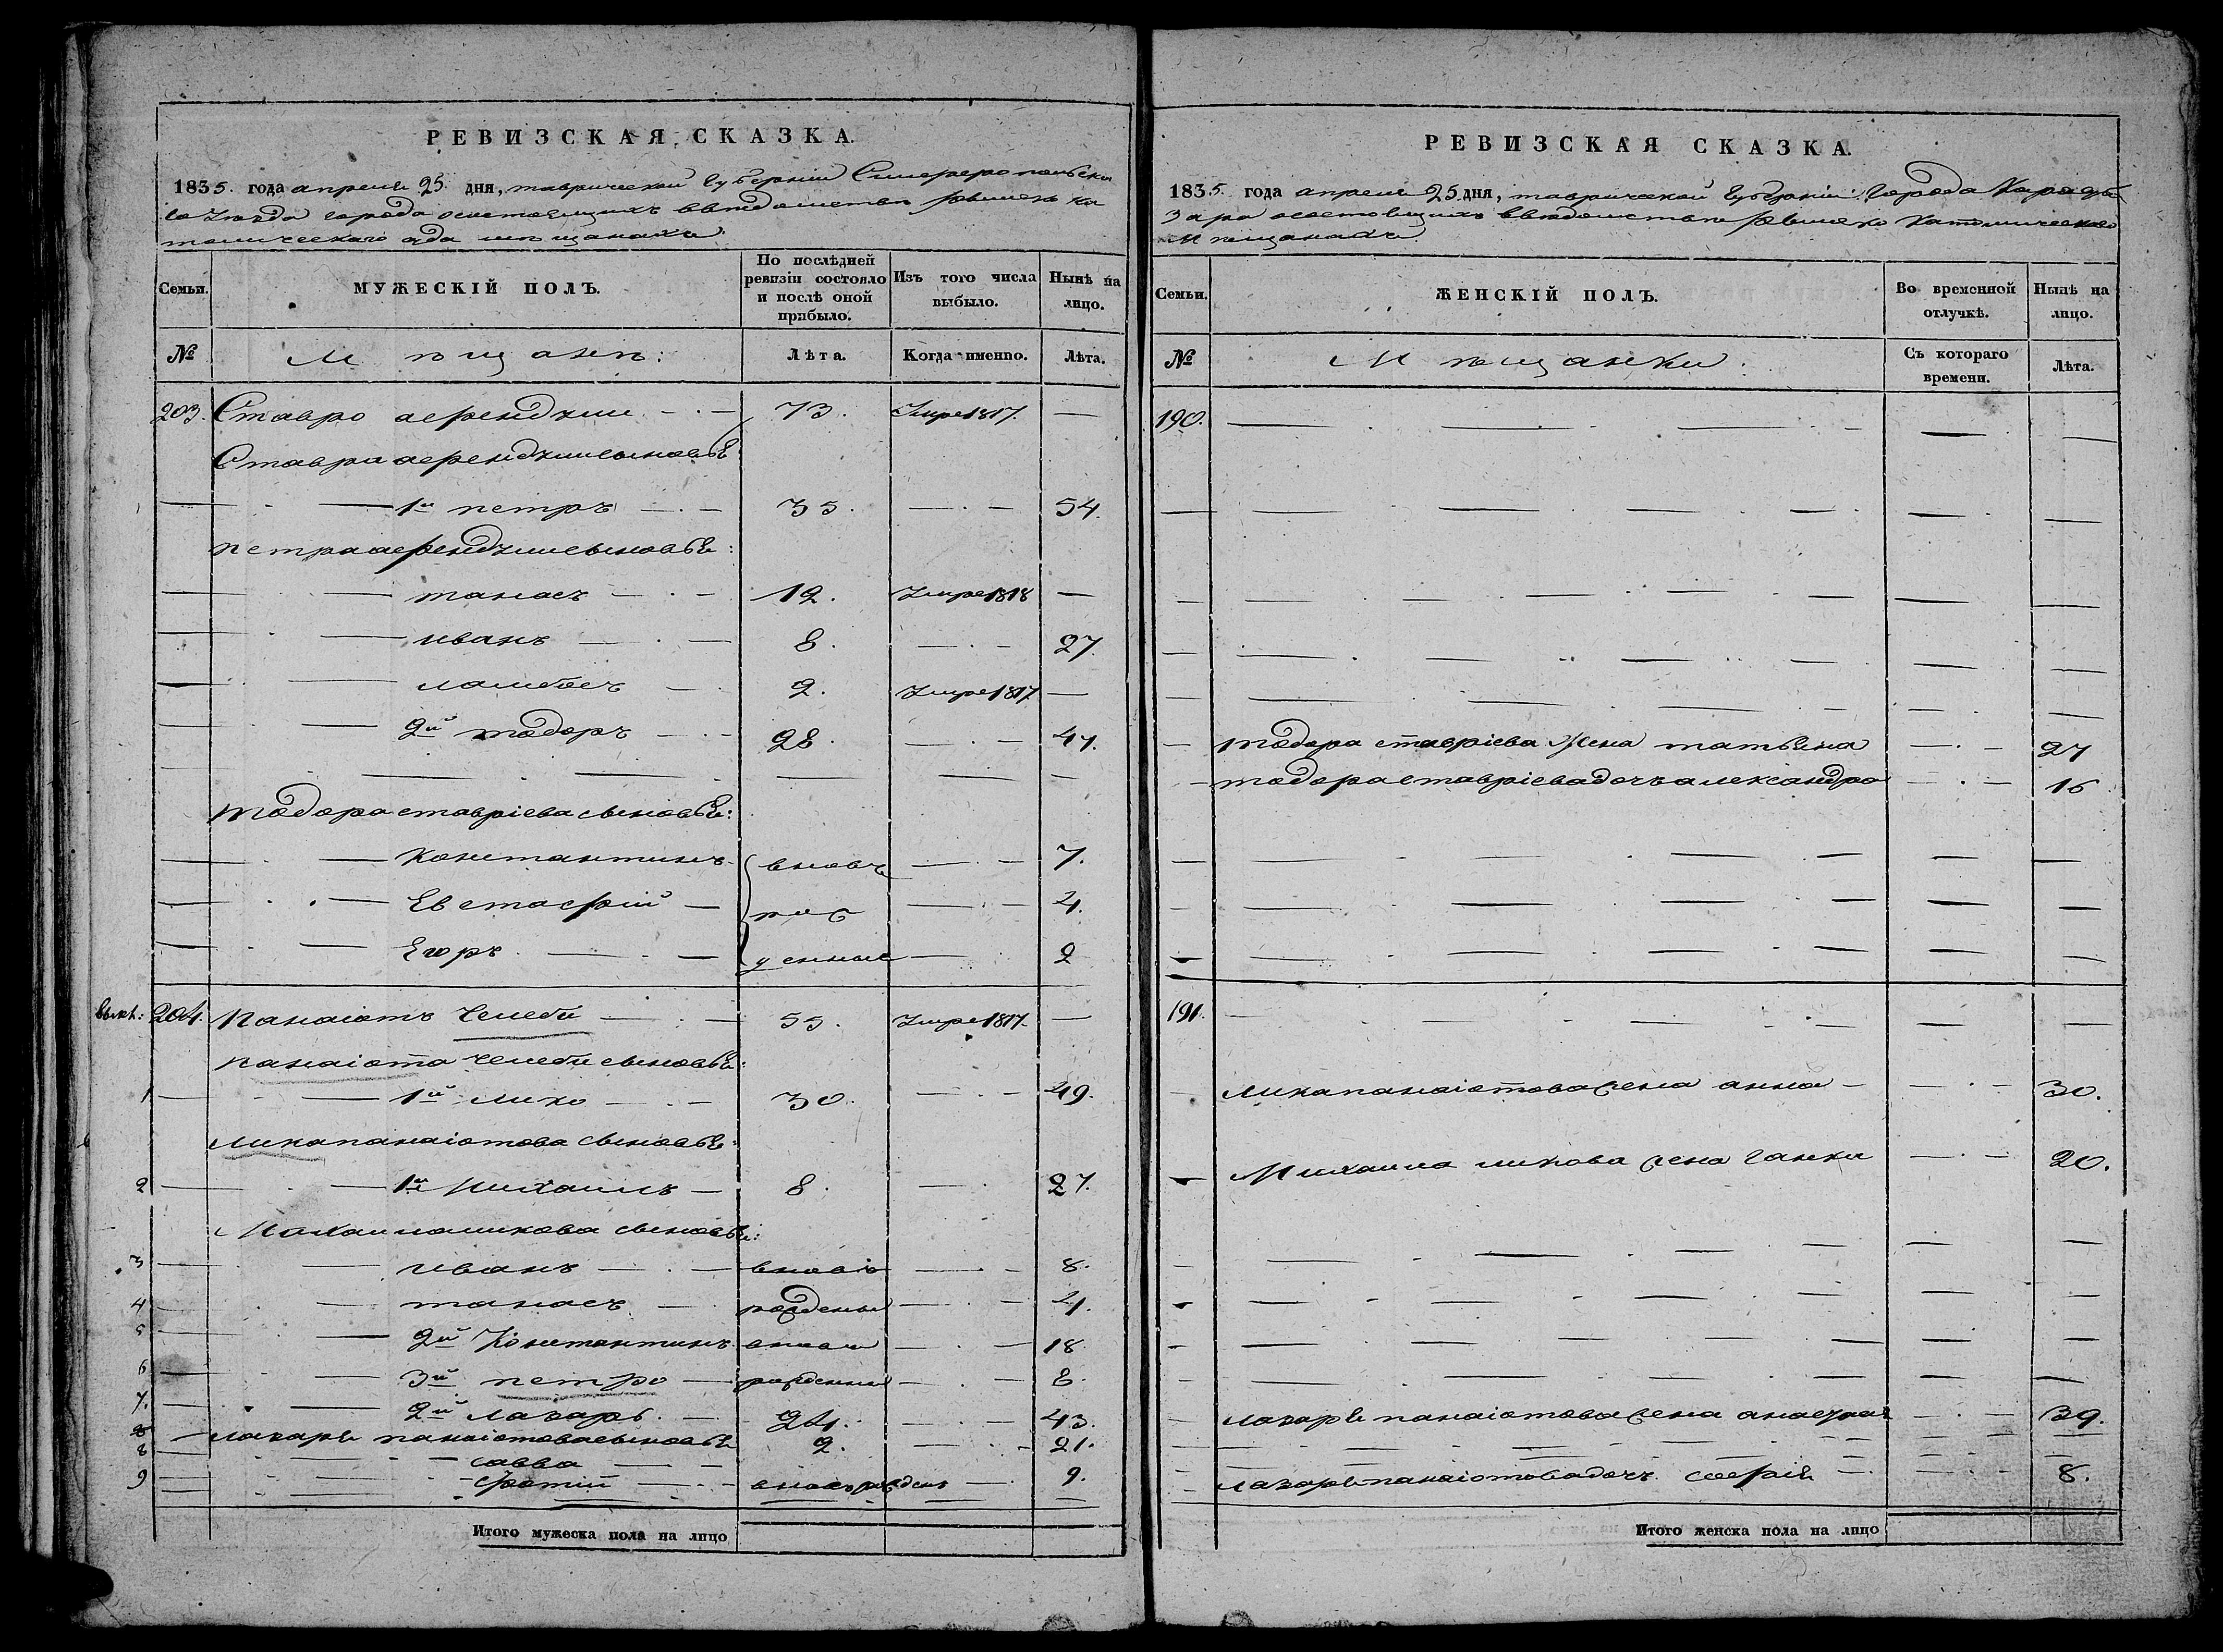 РЕВИЗСКАЯ СКАЗКА.
1835. года апреля 25. дня, таврической Губерніи Симферопольска
го Уезда города осостоящихъ вѣдомства римско ка
толическаго мѣщанахъ
Семьи. МУЖЕСКІЙ ПОЛЪ. По послѣдней ревизіи состояло и послѣ оной прибыло. Изъ того числа выбыло. Нынѣ на лицо.
№ Мѣщане: Лѣта. Когда именно. Лѣта.
203. Ставро 73. Умре 1817. —
Ставра сыновья
1й петръ 35. — 54.
петра сыновья:
танасъ 12. Умре 1818 —
иванъ 8. — 27.
2. Умре 1817 —
2й тодоръ 28. — 47.
тодора ставріева сыновья:
Константинъ вновь — 7.
Евстафій рож — 4.
Егоръ денные — 2
204. Панаіотъ Челеби 55. Умре 1817. —
панаіота челеби сыновья:
1 1й лико 30. — 49.
лика панаіотова сыновья:
2 1й Михаилъ 8. — 27.
Михаила ликова сыновья:
3 иванъ вновь — 8.
4 танасъ рожденые — 4.
5 2й Константинъ вновь — 18.
6 3й петро рожденные — 8.
7. 2й лазарь 24. — 43.
лазаря панаіотова сыновья
8 савва 2. — 21.
9 фотій вновь рожденъ — 9.
Итого мужеска пола на лицо
РЕВИЗСКАЯ СКАЗКА.
1835. года апреля 25 дня, таврической Губерніи: Города Карасу
зара осостоящихъ вѣдомства римско Католическаго
Мѣщанахъ.
Семьи. ЖЕНСКІЙ ПОЛЪ. Во временной отлучкѣ. Нынѣ на лицо.
№ Мѣщанки: Съ котораго времени. Лѣта.
190.
тодора ставріева Жена татьяна — 27
тодора ставріева дочь александра — 16
191.
лика панаіотова жена анна — 30.
Михаила ликова жена ганка — 20.
лазаря панаіотова жена — 39.
лазаря панаіотова дочь софія — 8.
Итого женска пола на лицо